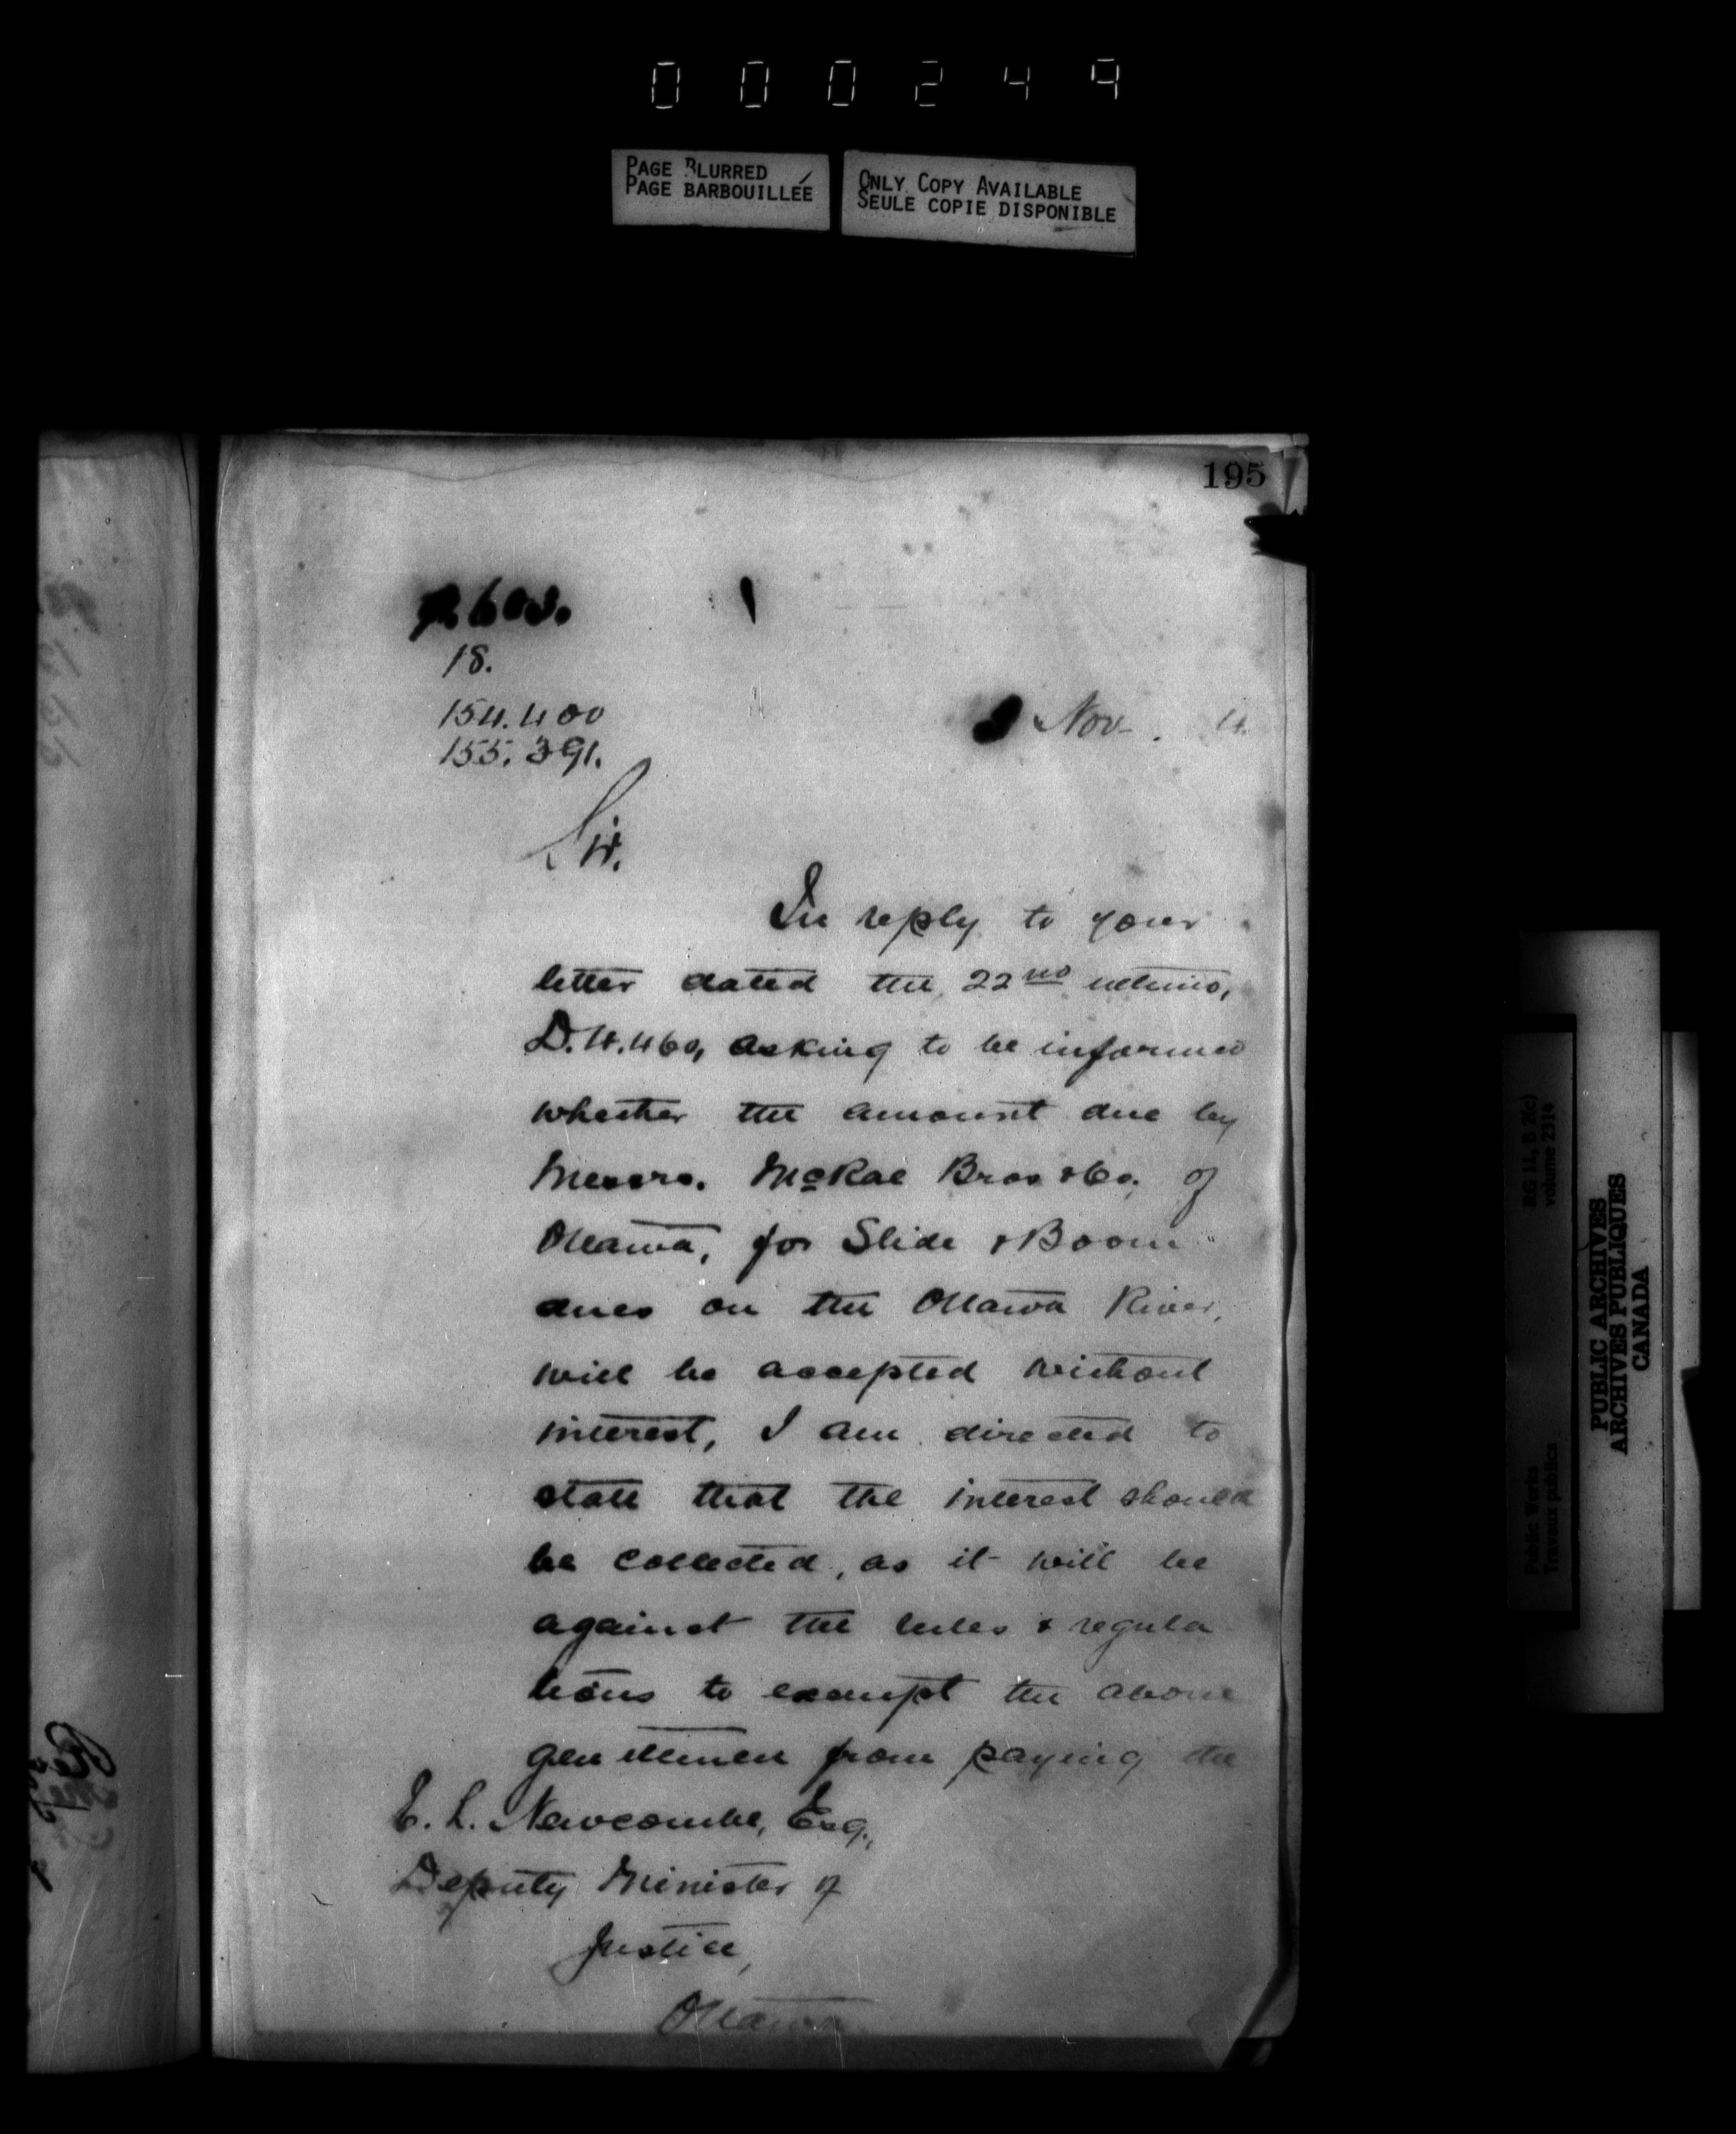 000249
PAGE BLURRED
PAGE BARBOUILLÉE
ONLY COPY AVAILABLE
SEULE COPIE DISPONIBLE
195
18.
154.400
155.391.
Nov. 4.
Sir.
In reply to your
letter dated the 22nd ultimo,
D. 4.460, asking to be informed
whether the amount due by
Messrs. McRae Bros & Co. of
Ottawa, for Slide & Boom
dues on the Ottawa River,
will be accepted without
interest, I am directed to
state that the interest should
be collected, as it will be
against the rules & regula
tions to exempt the above
gentlemen from paying the
E. L. Newcombe, Esq.,
Deputy Minister of
Justice,
Ottawa
Public Works
Travaux publics
RG 11, B 2(c)
volume 2314
PUBLIC ARCHIVES
ARCHIVES PUBLIQUES
CANADA